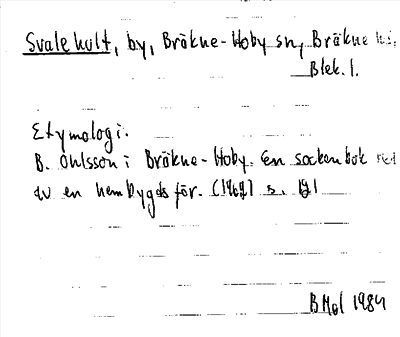 Svalehult, by, Bräkne-Hoby sn, Bräkne hd,
Blek. l.
Etymologi.
B. Ohlsson i Bräkne-Hoby. En sockenbok red
av en hembygdsför. (1969) s.
BMgl 1984